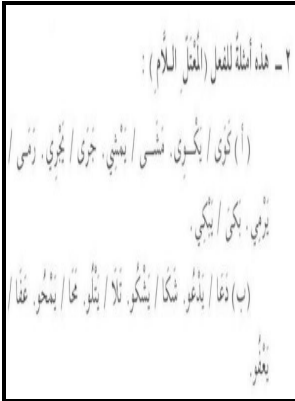 ٢ ــ هذه أمثلةٌ للفعل (المُعْتَلِّ اللَّامِ) :
(أ) كَوَى / يَكْـوِى. مَشَـى / يَمْشِي. جَرَى / يَجْرِي. رَمَى /
يَرْمِي. بَكَى / يَبْكِي.
(ب) دَعَا / يَدْعُو. شَكَا / يَشْكُو. تَلَا / يَتْلُو. مَحَا / يَمْحُو. عَفَا /
يَعْفُو.